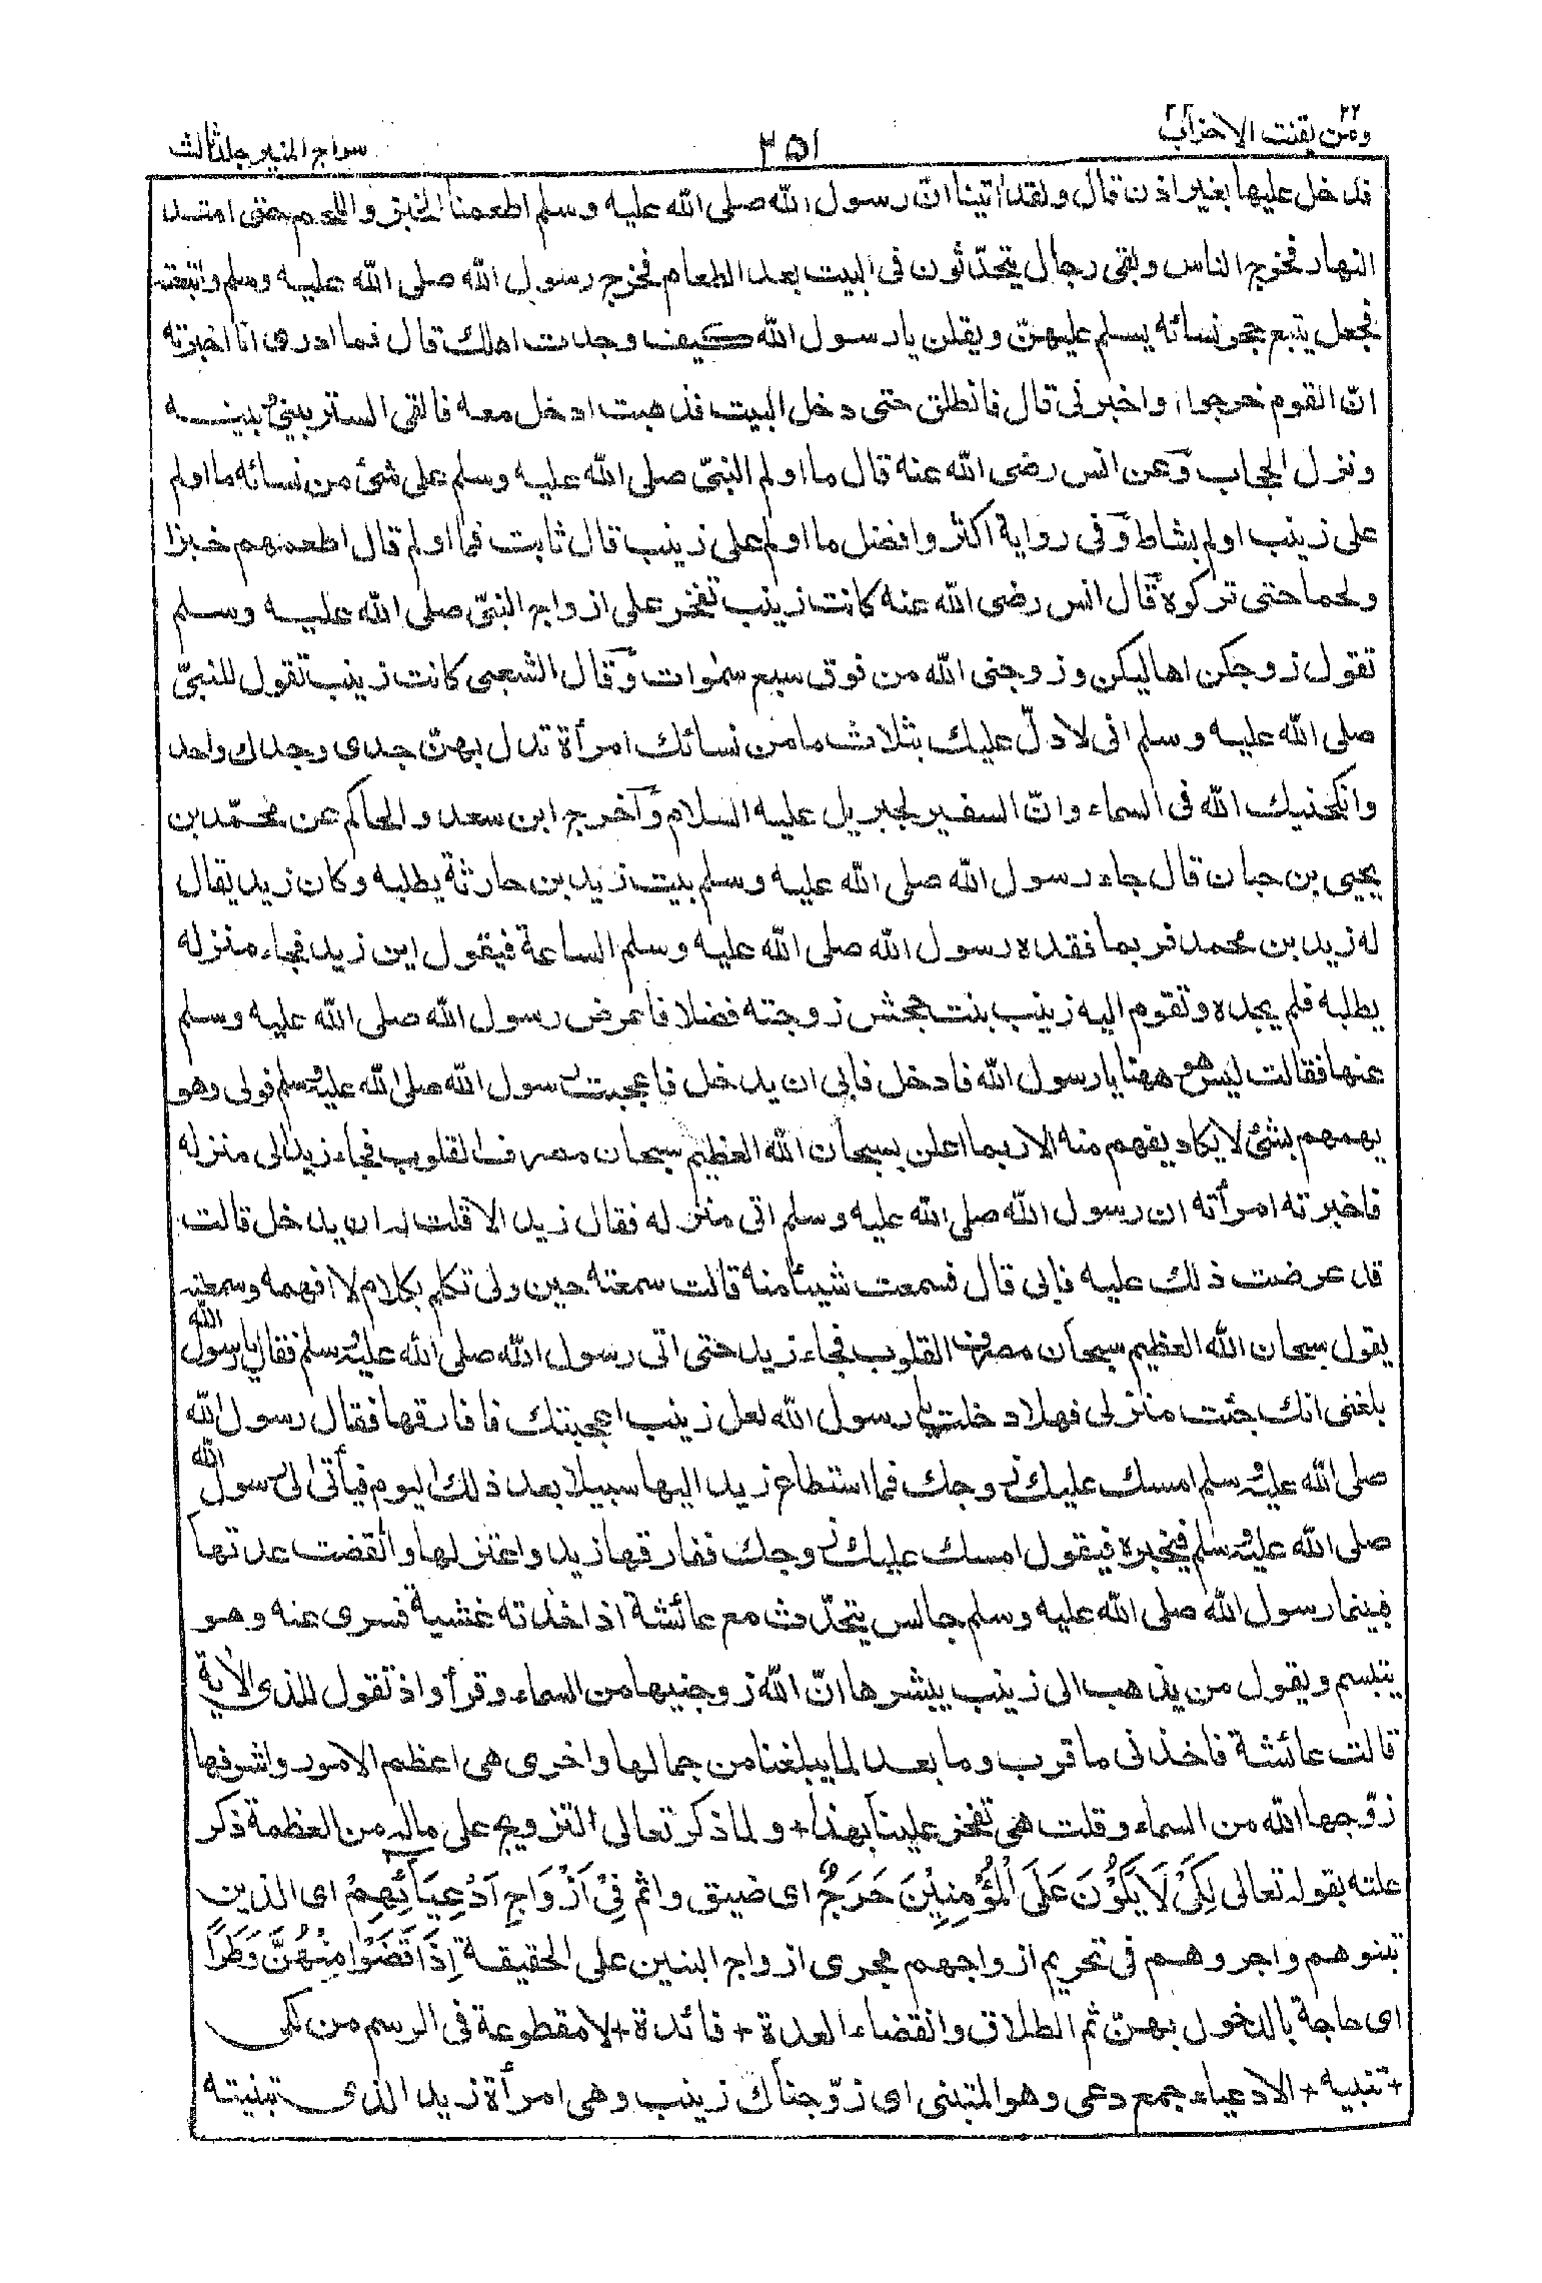 ومن يقنت ٢٢ الاحزاب ٣٣
٢٥١
سراج المنير جلد ثالث
فدخل عليها بغير اذن قال ولقد رأتينا انّ رسول الله صلى الله عليه وسلم اطعمنا الخبز واللحم حتى امتد
النهار فخرج الناس وبقى رجال يتحدّثون فى البيت بعد الطعام فخرج رسول الله صلى الله عليه وسلم واتبعته
فجعل يتبع حجر نسائه يسلم عليهنّ ويقلن يا رسول الله كيف وجدت اهلك قال فما ادرى انا اخبرته
انّ القوم خرجوا او اخبرنى قال فانطلق حتى دخل البيت فذهبت ادخل معه فالقى الستر بينى وبينه
ونزل الحجاب وعن انس رضى الله عنه قال ما اولم النبىّ صلى الله عليه وسلم على شئ من نسائه ما اولم
على زينب اولم بشاة وفى رواية اكثر وافضل ما اولم على زينب قال ثابت فما اولم قال اطعمهم خبزا
ولحما حتى تركوه قال انس رضى الله عنه كانت زينب تفخر على ازواج النبىّ صلى الله عليه وسلم
تقول زوجكن اهاليكن وزوجنى الله من فوق سبع سموات وقال الشعبى كانت زينب تقول للنبىّ
صلى الله عليه وسلم انى لادلّ عليك بثلاث ما من نسائك امرأة تدل بهنّ جدى وجدك واحد
وانكحنيك الله فى السماء وانّ السفير لجبريل عليه السلام واخرج ابن سعد والحاكم عن محمّد بن
يحيى بن حبان قال جاء رسول الله صلى الله عليه وسلم بيت زيد بن حارثة يطلبه وكان زيد يقال
له زيد بن محمد فربما فقده رسول الله صلى الله عليه وسلم الساعة فيقول اين زيد فجاء منزله
يطلبه فلم يجده وتقوم اليه زينب بنت جحش زوجته فضلا فاعرض رسول الله صلى الله عليه وسلم
عنها فقالت ليس هو ههنا يا رسول الله فادخل فابى ان يدخل فاعجبت رسول الله صلى الله عليه وسلم فولى وهو
يهمهم بشئ لا يكاد يفهم منه الا ربما اعلن بسبحان الله العظيم سبحان مصرف القلوب فجاء زيد الى منزله
فاخبرته امرأته ان رسول الله صلى الله عليه وسلم اتى منزله فقال زيد الا قلت له ان يدخل قالت
قد عرضت ذلك عليه فابى قال فسمعت شيئا منه قالت سمعته حين ولى تكلم بكلام لا افهمه وسمعته
يقول سبحان الله العظيم سبحان مصرف القلوب فجاء زيد حتى اتى رسول الله صلى الله عليه وسلم فقال يا رسول الله
بلغنى انك جئت منزلى فهلا دخلت يا رسول الله لعل زينب اعجبتك فافارقها فقال رسول الله
صلى الله عليه وسلم امسك عليك زوجك فما استطاع زيد اليها سبيلا بعد ذلك اليوم فيأتى الى رسول الله
صلى الله عليه وسلم فيخبره فيقول امسك عليك زوجك ففارقها زيد واعتزلها وانقضت عدتها
فبينما رسول الله صلى الله عليه وسلم جالس يتحدّث مع عائشة اذ اخذته غشية فسرى عنه وهو
يتبسم ويقول من يذهب الى زينب يبشرها انّ الله زوجنيها من السماء وقرأ واذ تقول للذى الآية
قالت عائشة فاخذنى ما قرب وما بعد لما يبلغنا من جمالها واخرى هى اعظم الامور واشرفها
زوّجها الله من السماء وقلت هى تفخر علينا بهذا + ولما ذكر تعالى التزويج على ماله من العظمة ذكر
علته بقوله تعالى لِكَىْ لَا يَكُوْنَ عَلَى الْمُؤْمِنِيْنَ حَرَجٌ اى ضيق واثم فِىْ اَزْوَاجِ اَدْعِيَآئِهِمْ اى الذين
تبنوهم واجروهم فى تحريم ازواجهم مجرى ازواج البنين على الحقيقة اِذَا قَضَوْا مِنْهُنَّ وَطَرًا
اى حاجة بالدخول بهنّ ثم الطلاق وانقضاء العدة + فائدة + لا مقطوعة فى الرسم من لكى
+ تنبيه + الادعياء جمع دعى وهو المتبنى اى زوّجناك زينب وهى امرأة زيد الذى تبنيته